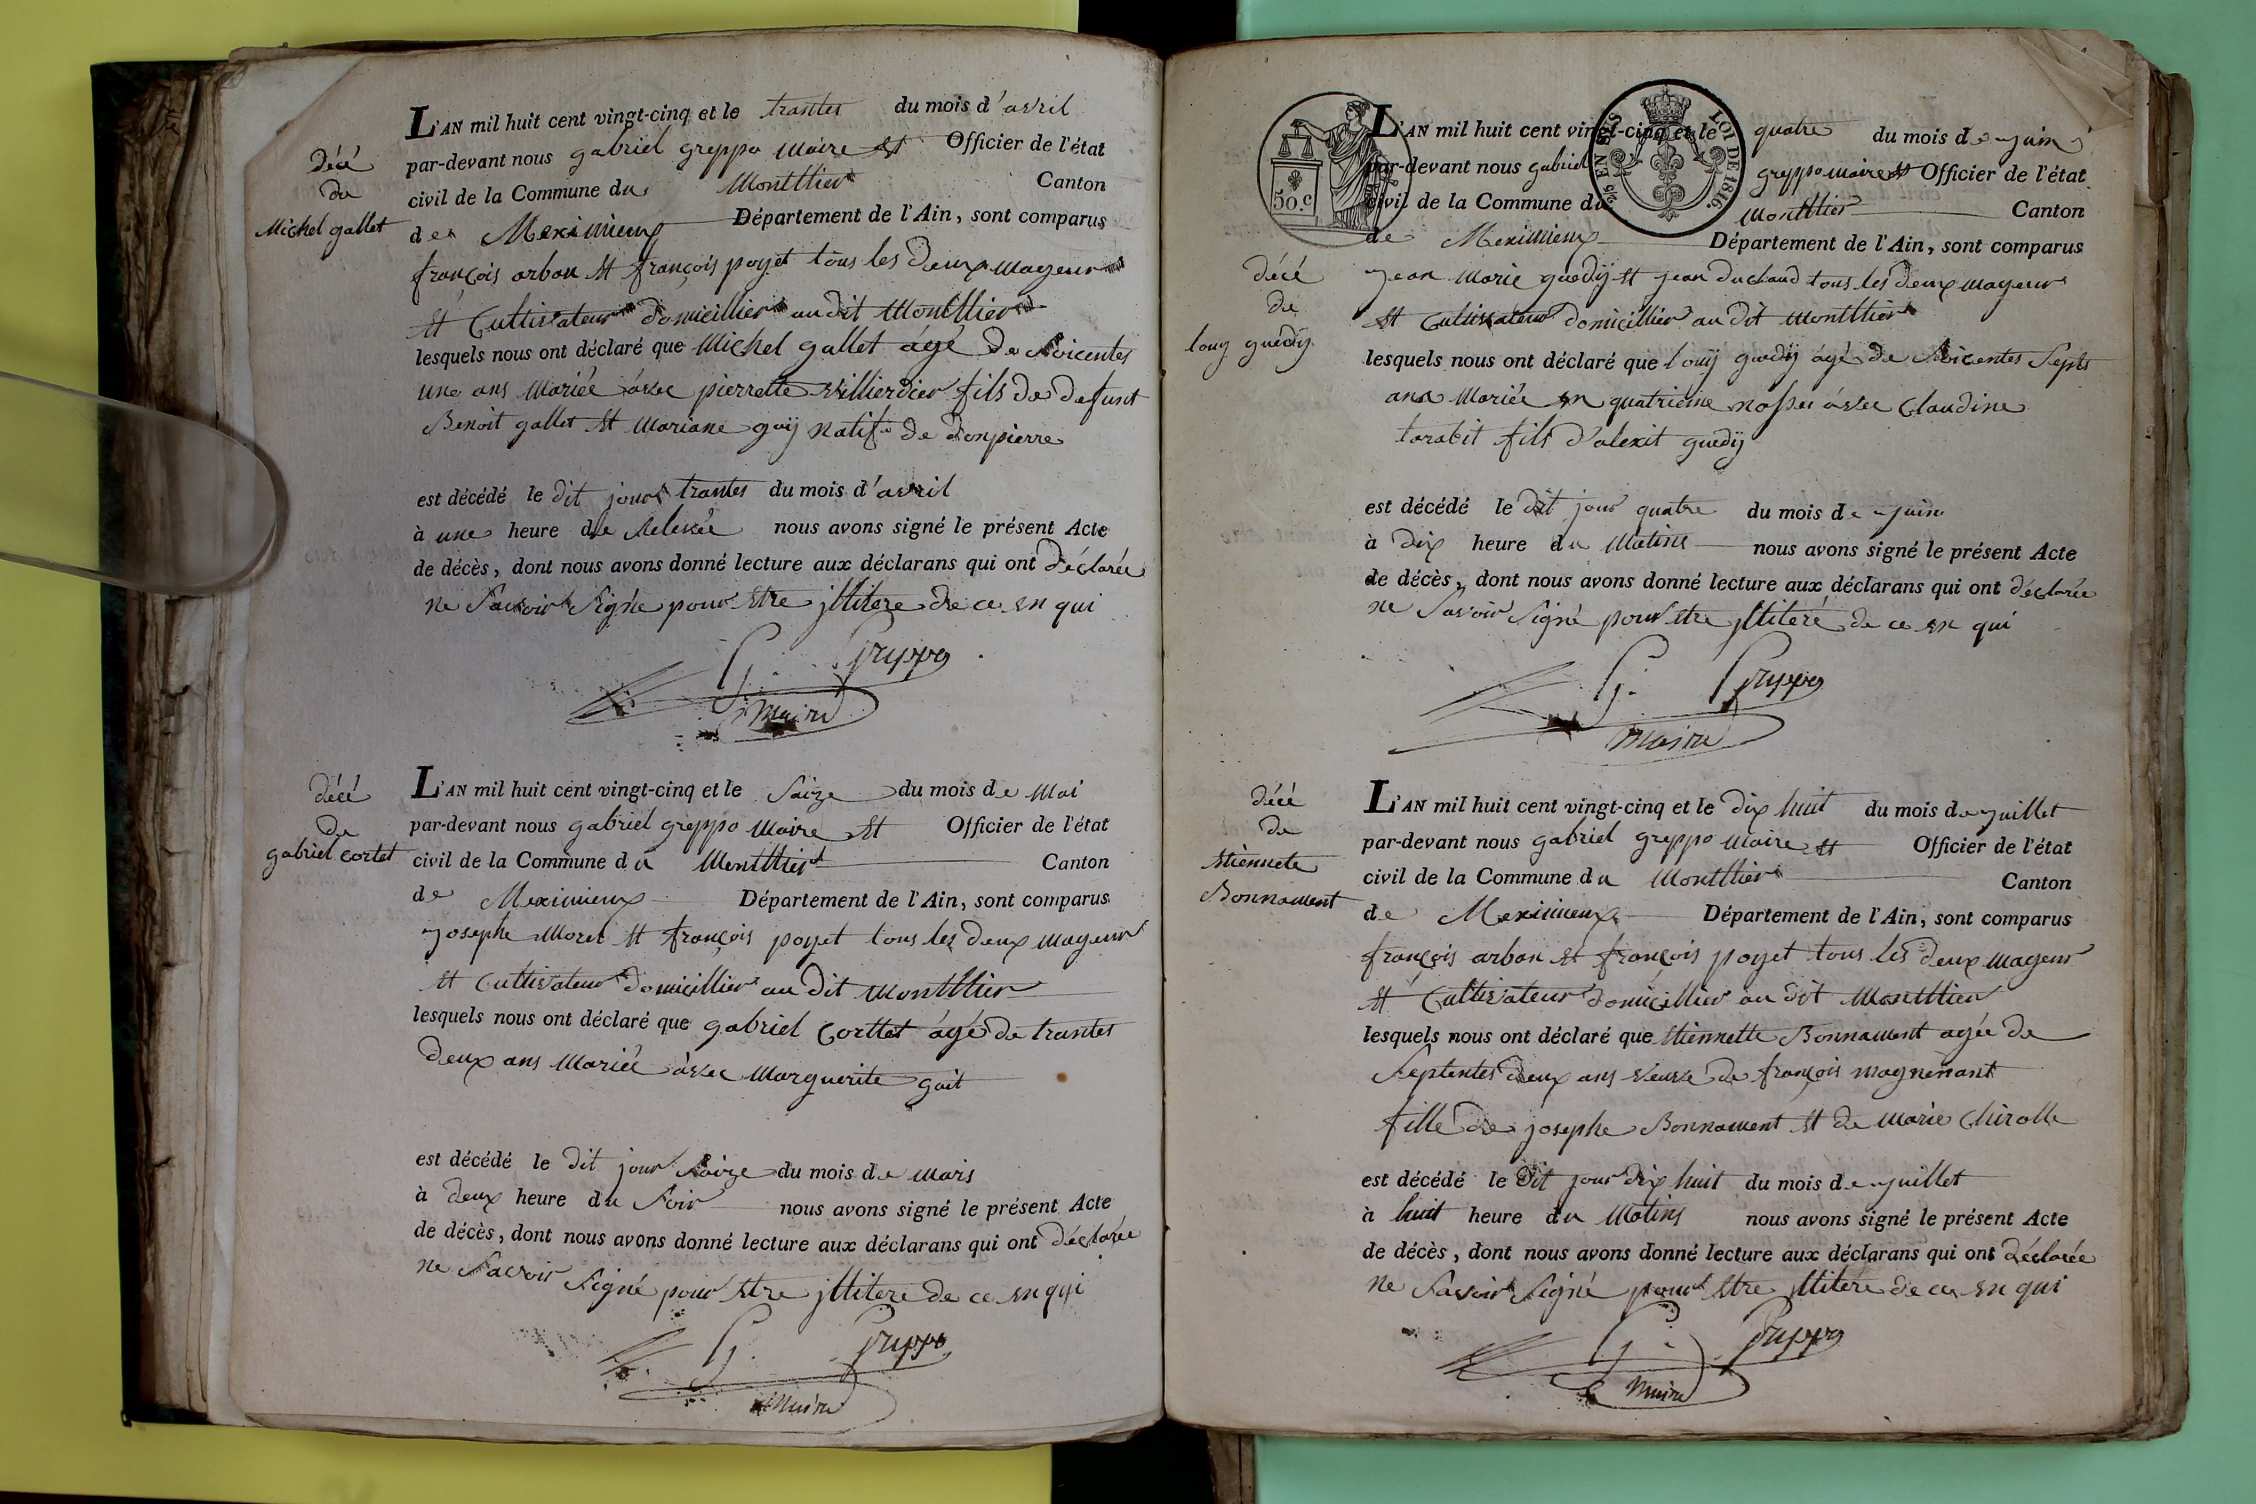 L'AN mil huit cent vingt-cinq et le trantes du mois d'avril
par-devant nous gabriel greppo maire et Officier de l'état
civil de la Commune du Montllier Canton
de Meximieux Département de l'Ain, sont comparus
françois arban et françois poyet tous les deux mayeur
et Cultivateur domicillier au dit Montllier
lesquels nous ont déclaré que Michel gallet âgé de soicentes
une ans mariée avec pierrette villierdier fils de defunt
Benoit gallet et mariane guij natif de donpierre
est décédé le dit jour trantes du mois d'avril
à une heure de relevée nous avons signé le présent Acte
de décès, dont nous avons donné lecture aux déclarans qui ont déclarée
ne savoir signe pour etre illitere de ce enqui
G. Greppo
maire
décé
du
Michel gallet
L'AN mil huit cent vingt-cinq et le saize du mois de mai
par-devant nous gabriel greppo maire et Officier de l'état
civil de la Commune du Montllier Canton
de Meximieux Département de l'Ain, sont comparus
josephe Moret et françois poyet tous les deux mayeur
et Cultivateur domicillier au dit Montllier
lesquels nous ont déclaré que gabriel Corttet âgé de trantes
deux ans mariée avec Marguerite gait
est décédé le dit jour saize du mois de mais
à deux heure du soir nous avons signé le présent Acte
de décès, dont nous avons donné lecture aux déclarans qui ont déclarée
ne savoir signé pour etre illitere de ce enqui
G. Greppo
maire
décé
du
gabriel cortet
50.C
2/5 EN SUS
LOI DE 1816.
L'AN mil huit cent vingt-cinq et le quatre du mois de juin
par-devant nous gabriel greppo maire et Officier de l'état
civil de la Commune du Montllier Canton
de Meximieux Département de l'Ain, sont comparus
jean marie guedij et jean duclaud tous les deux mayeur
et Cultivateur domicillier au dit Montllier
lesquels nous ont déclaré que louij guedij âgé de soicentes septs
ans Mariée en quatrieme nosse avec Claudine
tarabit fils d'alexit guedij
est décédé le dit jour quatre du mois de juin
à dix heure du matins nous avons signé le présent Acte
de décès, dont nous avons donné lecture aux déclarans qui ont déclarée
ne savoir signé pour etre illiteré de ce en qui
G. Greppo
maire
décé
de
louy guedij
L'AN mil huit cent vingt-cinq et le dix huit du mois de juillet
par-devant nous gabriel greppo maire et Officier de l'état
civil de la Commune du Montllier Canton
de Meximieux Département de l'Ain, sont comparus
françois arban et françois poyet tous les deux mayeur
et Cultivateur domicillier au dit Montllier
lesquels nous ont déclaré que etiennette Bonnament agée de
septentes deux ans veuve de françois magnenant
fille de josephe Bonnament et de marie Chirolle
est décédé le dit jour dix huit du mois de juillet
à huit heure du matins nous avons signé le présent Acte
de décès, dont nous avons donné lecture aux déclarans qui ont déclarée
ne savoir signé pour etre illitere de ce en qui
G. Greppo
maire
décé
de
etiennete
Bonnament